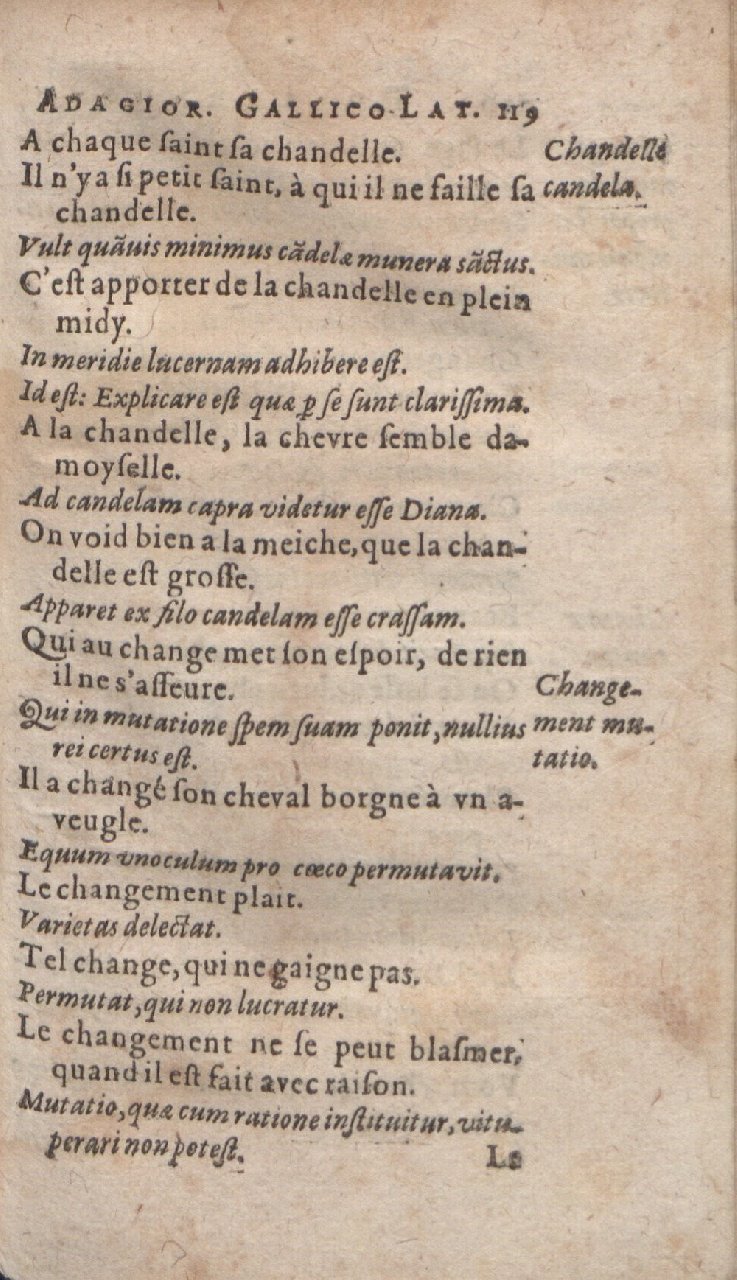 ADAGIOR. GALLICO LAT. 119
A chaque ſaint ſa chandelle.
Chandelle
Il n'y a ſi petit ſaint, à qui il ne faille ſa
candela.
chandelle.
Vult quãuis minimus cãdelæ munera sãctus.
C'eſt apporter de la chandelle en plein
midy.
In meridie lucernam adhibere eſt.
Id eſt: Explicare eſt quæ ꝑ ſe ſunt clariſſima.
A la chandelle, la chevre ſemble da-
moyſelle.
Ad candelam capra videtur eſſe Diana.
On void bien a la meiche, que la chan-
delle eſt groſſe.
Apparet ex filo candelam eſſe craſſam.
Qui au change met ſon eſpoir, de rien
il ne s'aſſeure.
Change-
Qui in mutatione ſpem ſuam ponit, nullius
ment mu-
rei certus eſt.
tatio.
Il a changé ſon cheval borgne à vn a-
veugle.
Equum vnoculum pro cœco permutavit.
Le changement plait.
Varietas delectat.
Tel change, qui ne gaigne pas.
Permutat, qui non lucratur.
Le changement ne ſe peut blaſmer,
quand il eſt fait avec raiſon.
Mutatio, quæ cum ratione inſtituitur, vitu-
perari non poteſt.
Le